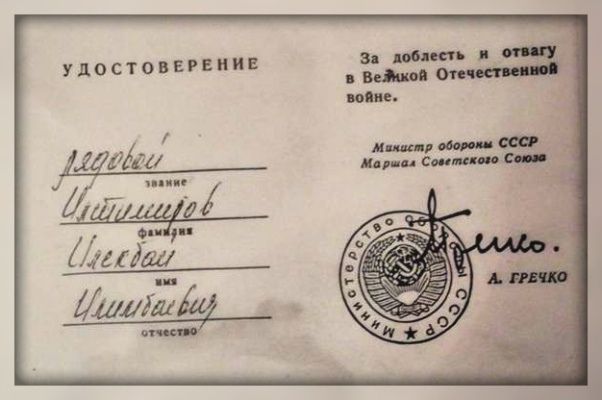 УДОСТОВЕРЕНИЕ
рядовой
звание
Илтимиров
фамилия
Илекбай
имя
Илимбаевич
отчество
За доблесть и отвагу
в Великой Отечественной
войне.
Министр обороны СССР
Маршал Советского Союза
Министерство Обороны СССР
А. ГРЕЧКО